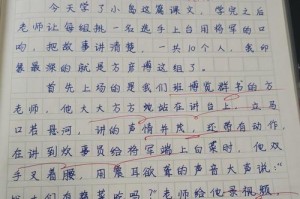 今天学了小岛这篇课文，学完之后
老师让每组挑一名选手上台用将军的口
吻，把故事讲清楚，一共10个人，我印
象最深的就是方启博这组了。
首先上场的是我们班博览群书的方
老师，他大大方方地站在讲台上，立马
口若悬河，讲的声情并茂，还带有动作，
在讲到炊事员给将军端上白菜时，他双
手叉着腰，用震耳欲聋的声音大声说：“
战士们有蔬菜吃吗？”老师给他录视频，